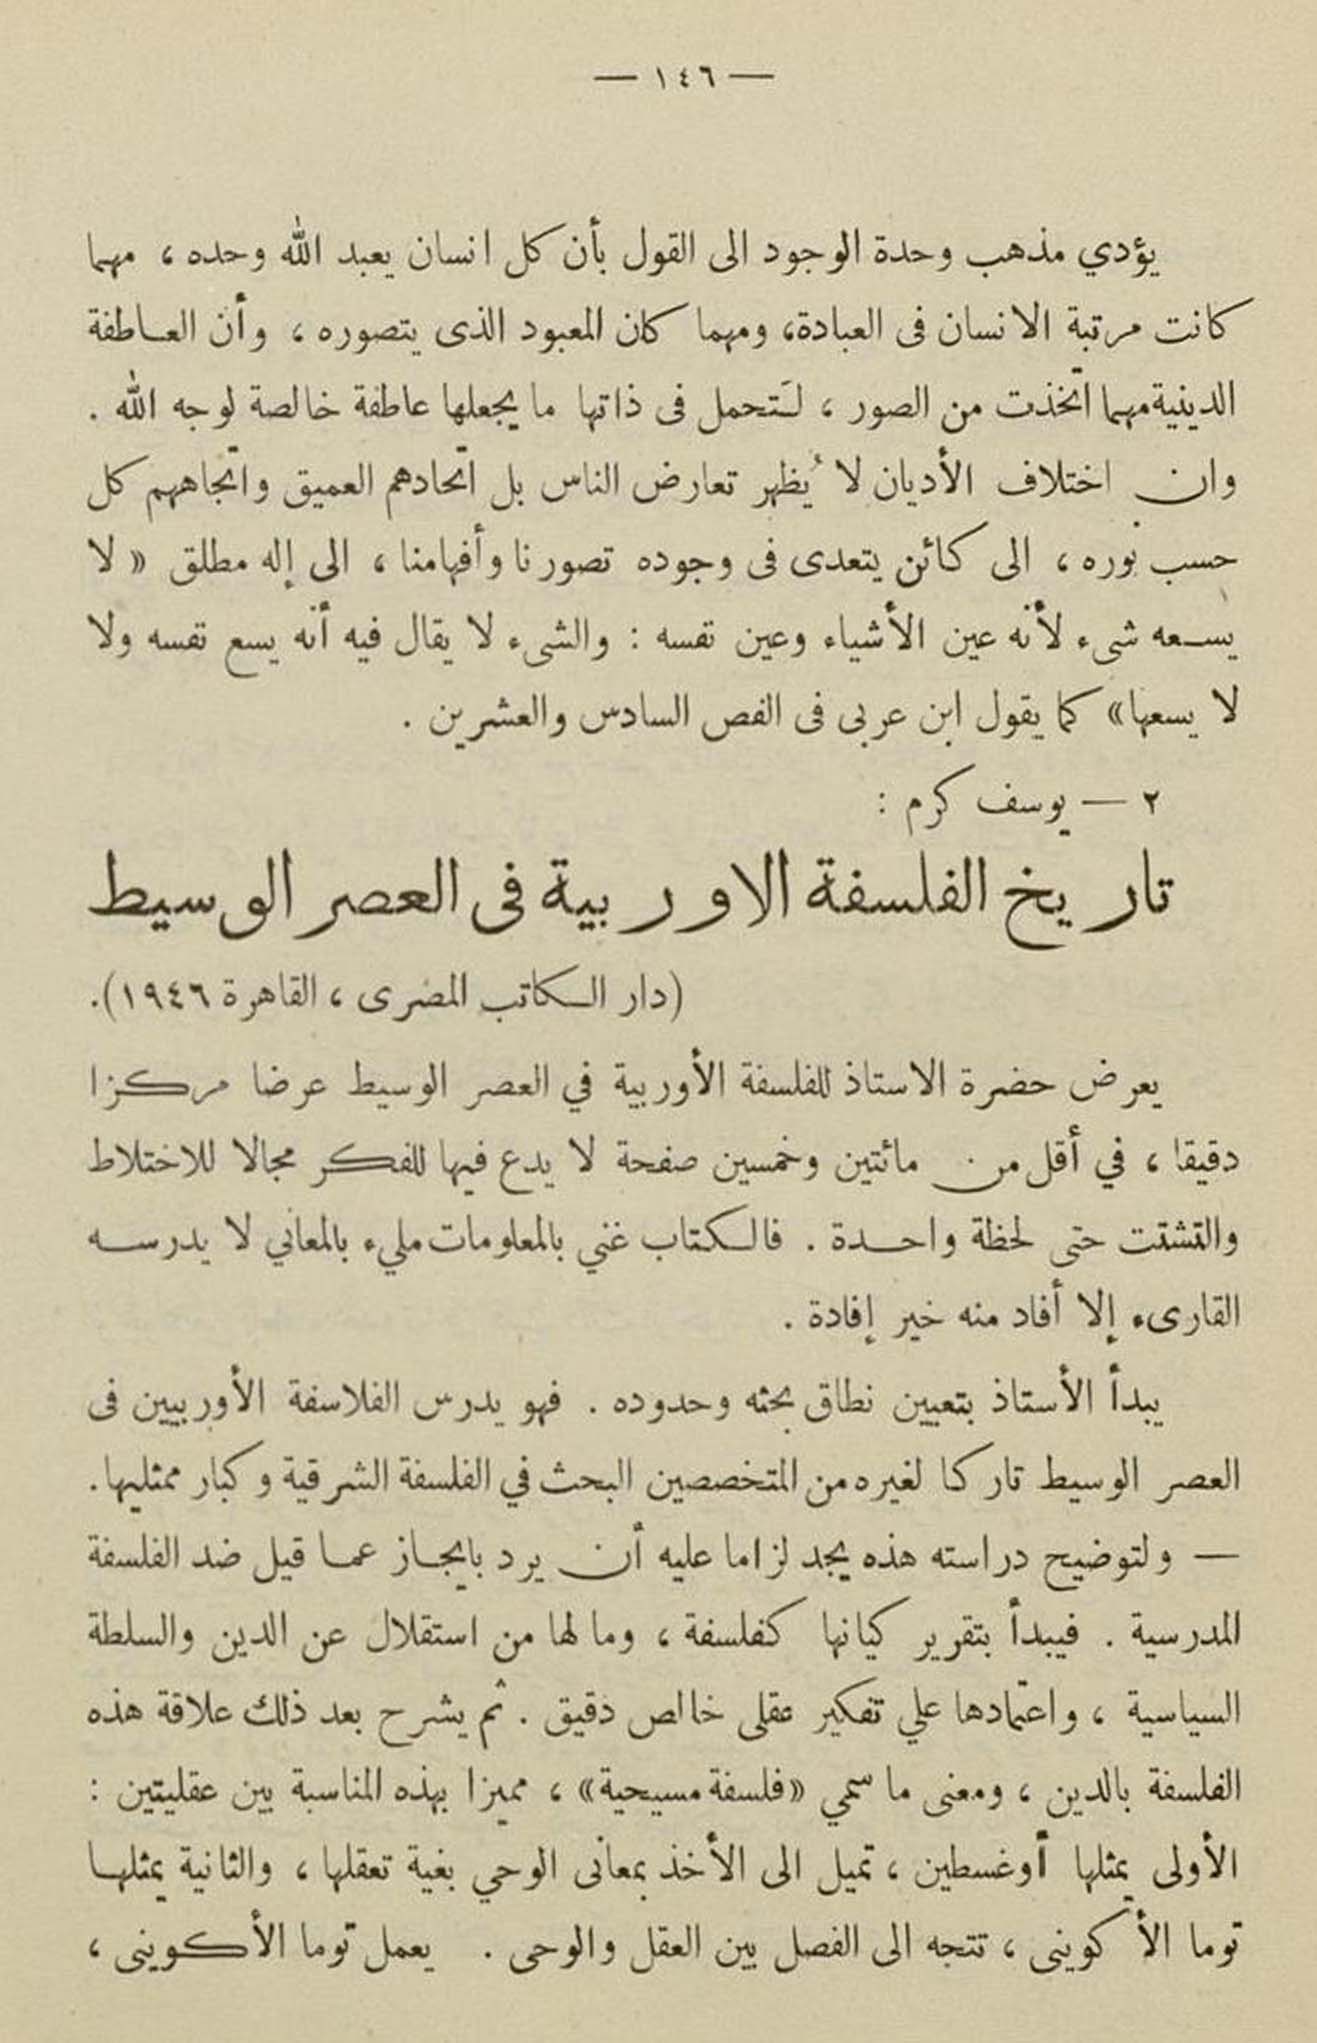 — ١٤٦ —
يؤدي مذهب وحدة الوجود الى القول بأن كل انسان يعبد الله وحده ، مهما
كانت مرتبة الانسان فى العبادة، ومهما كان المعبود الذى يتصوره ، وأن العـاطفة
الدينية مهما اتّخذت من الصور ، لَتحمل فى ذاتها ما يجعلها عاطفة خالصة لوجه الله .
وان اختلاف الأديان لا يُظهر تعارض الناس بل اتّحادهم العميق واتّجاههم كل
حسب نوره ، الى كائن يتعدى فى وجوده تصورنا وأفهامنا ، الى إله مطلق « لا
يسـعه شىء لأنه عين الأشياء وعين نفسه : والشىء لا يقال فيه أنه يسع نفسه ولا
لا يسعها» كما يقول ابن عربى فى الفص السادس والعشرين .
٢ — يوسف كرم :
تاريخ الفلسفة الاوربية فى العصر الوسيط
(دار الـكاتب المصرى ، القاهرة ١٩٤٦).
يعرض حضرة الاستاذ للفلسفة الأوربية في العصر الوسيط عرضا مركزا
دقيقا ، في أقل من مائتين وخمسين صفحة لا يدع فيها للفكر مجالا للاختلاط
والتشتت حتى لحظة واحـدة . فالـكتاب غني بالمعلومات مليء بالمعاني لا يدرسـه
القارىء إلا أفاد منه خير إفادة .
يبدأ الأستاذ بتعيين نطاق بحثه وحدوده . فهو يدرس الفلاسفة الأوربيين فى
العصر الوسيط تاركا لغيره من المتخصصين البحث في الفلسفة الشرقية وكبار ممثليها.
— ولتوضيح دراسته هذه يجد لزاما عليه أن يرد بايجـاز عمـا قيل ضد الفلسفة
المدرسية . فيبدأ بتقرير كيانها كفلسفة ، وما لها من استقلال عن الدين والسلطة
السياسية ، واعتمادها علي تفكير عقلى خالص دقيق . ثم يشرح بعد ذلك علاقة هذه
الفلسفة بالدين ، ومعنى ما سمي «فلسفة مسيحية» ، مميزا بهذه المناسبة بين عقليتين :
الأولى يمثلها أوغسطين ، تميل الى الأخذ بمعانى الوحي بغية تعقلها ، والثانية يمثلهـا
توما الأكوينى ، تتجه الى الفصل بين العقل والوحى . يعمل توما الأكوينى ،